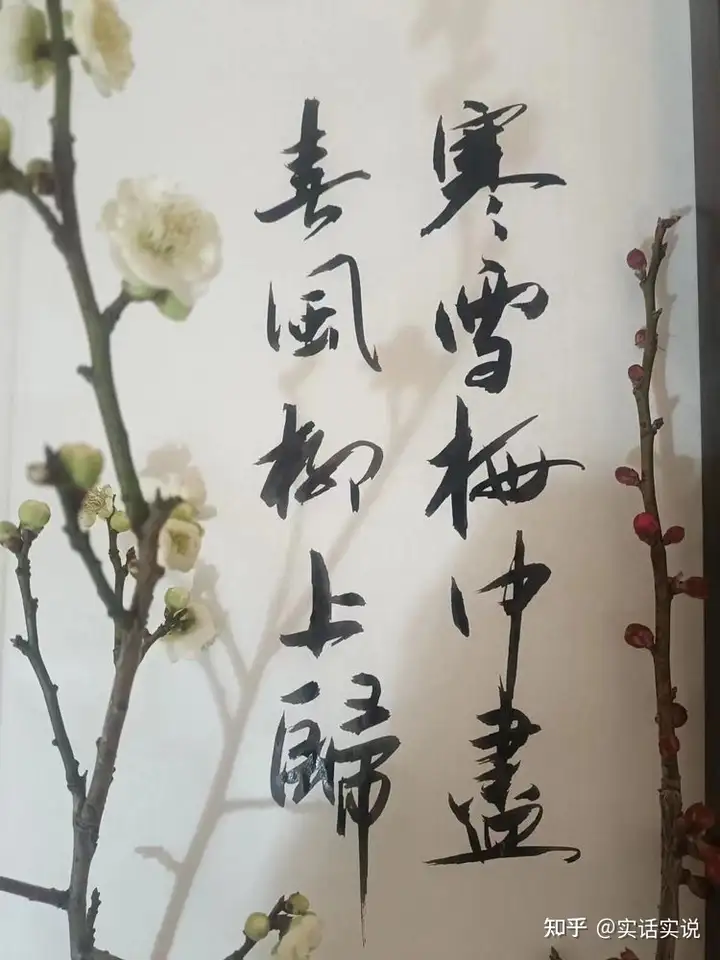 寒雪梅中盡
春風柳上歸
知乎 @实话实说